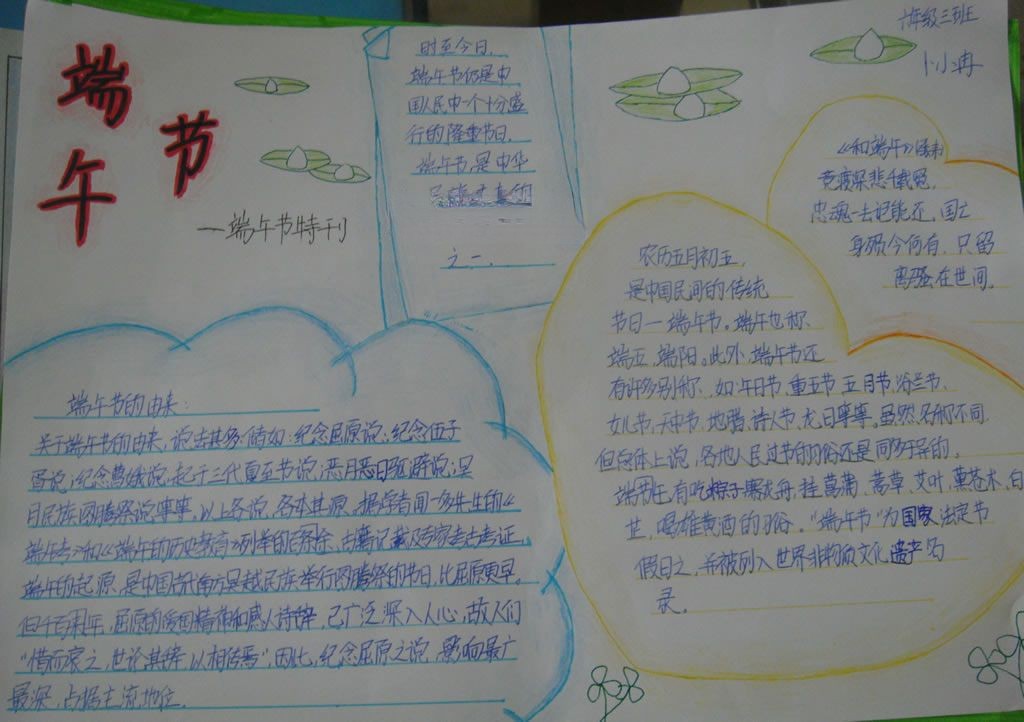 端午节
—端午节特刊
时至今日,
端午节仍是中
国人民中一个十分盛
行的隆重节日.
端午节是中华
之一.
六年级三班
《和端午》
竞渡深悲千载冤,
忠魂一去讵能还.国亡
身殒今何有,只留
离骚在世间.
农历五月初五,
是中国民间的传统
节日—端午节。端午也称
端五,端阳。此外,端午节还
有许多别称、如:午日节、重五节 五月节、浴兰节、
女儿节、天中节、地腊、诗人节、龙日等等。虽然名称不同
但总体上说,各地人民过节的习俗还是同多于异的。
有吃粽子 赛龙舟、挂菖蒲、蒿草、艾叶,薰苍术、白
芷,喝雄黄酒的习俗。"端午节"为国家法定节
假日之,并被列入世界非物质文化遗产名
录。
端午节的由来:
关于端午节的由来,说法甚多,诸如:纪念屈原说;纪念伍子
胥说;纪念曹娥说;起于三代夏至节说;恶月恶日驱避说;吴
月民族图腾祭说等等。以上各说,各本其源。据学者闻一多先生的《
端午考》和《端午的历史教育》列举的百余条古籍记载及专家考古考证,
端午的起源,是中国古代南方吴越民族举行图腾祭的节日,比屈原更早。
但千百年,屈原的爱国精神和感人诗辞,已广泛深入人心,故人们
"惜而哀之,世论其辞,以相传焉",因此,纪念屈原之说,影响最广
最深,占据主流地位.